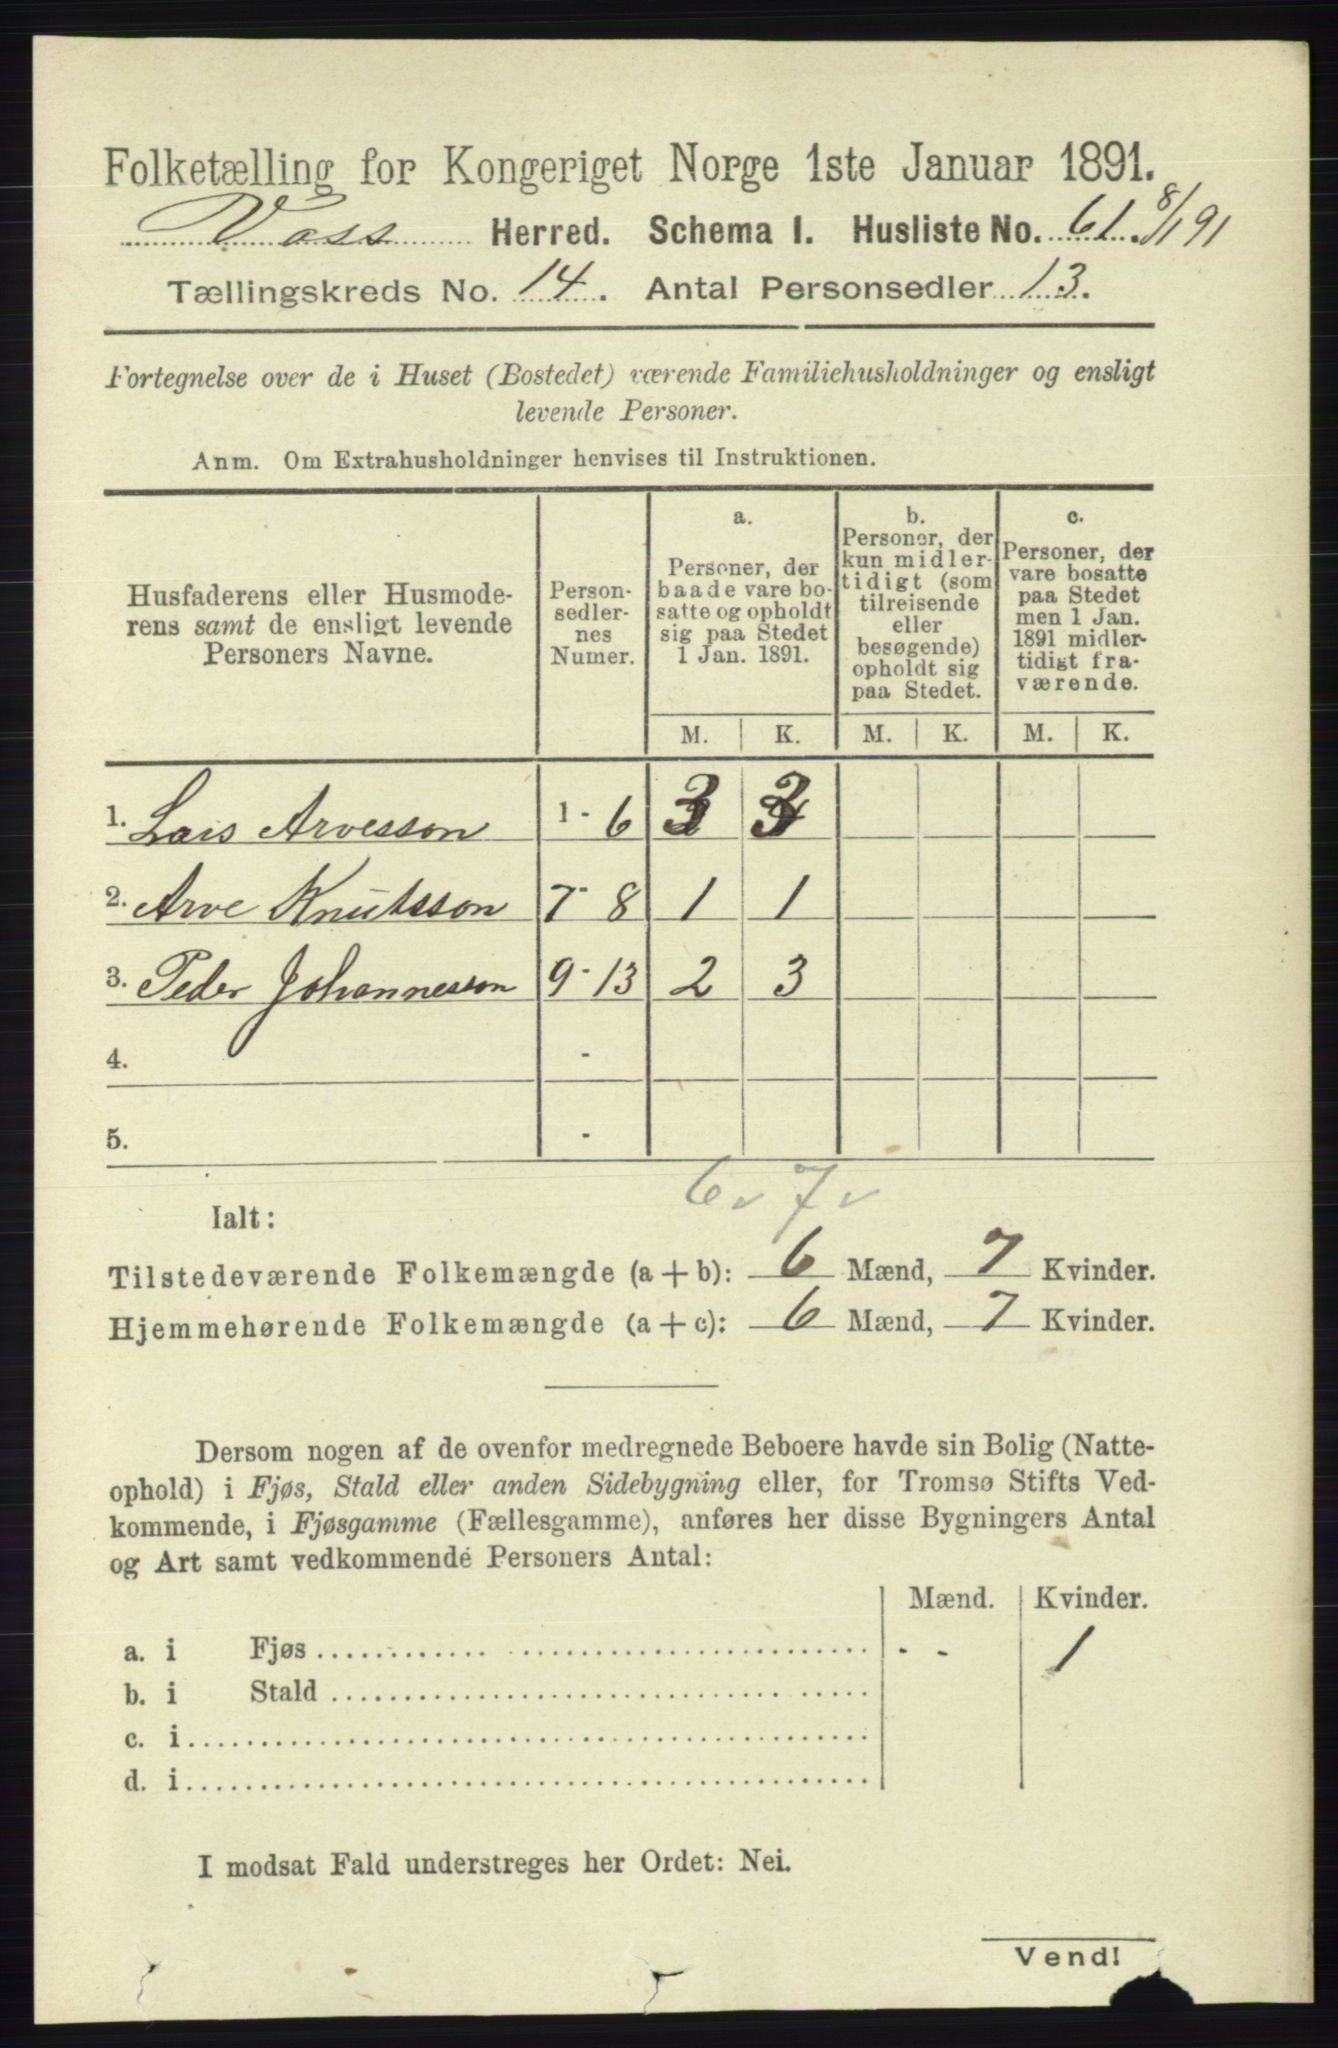 Folketælling for Kongeriget Norge 1ste Januar 1891.
Voss Herred. Schema I. Husliste No. 61. 8/1 91
Tællingskreds No. 14. Antal Personsedler 13.
Fortegnelse over de i Huset (Bostedet) værende Familiehusholdninger og ensligt
levende Personer.
Anm. Om Extrahusholdninger henvises til Instruktionen.
Husfaderens eller Husmode-
rens samt de ensligt levende
Personers Navne.
Person-
sedler-
nes
Numer.
a.
Personer, der
baade vare bo-
satte og opholdt
sig paa Stedet
1 Jan. 1891.
b.
Personer, der
kun midler-
tidigt (som
tilreisende
eller
besøgende)
opholdt sig
paa Stedet.
c.
Personer, der
vare bosatte
paa Stedet
men 1 Jan.
1891 midler-
tidigt fra-
værende.
M. K. M. K. M. K.
1. Lars Arvesson 1 - 6 3 3
2. Arve Knutsson 7 - 8 1 1
3. Peder Johannesson 9 - 13 2 3
4. -
5. -
6 v 7 v
Ialt:
Tilstedeværende Folkemængde (a + b): 6 Mænd, 7 Kvinder.
Hjemmehørende Folkemængde (a + c): 6 Mænd, 7 Kvinder.
Dersom nogen af de ovenfor medregnede Beboere havde sin Bolig (Natte-
ophold) i Fjøs, Stald eller anden Sidebygning eller, for Tromsø Stifts Ved-
kommende, i Fjøsgamme (Fællesgamme), anføres her disse Bygningers Antal
og Art samt vedkommende Personers Antal:
Mænd. Kvinder.
a. i Fjøs - - 1
b. i Stald
c. i
d. i
I modsat Fald understreges her Ordet: Nei.
Vend!